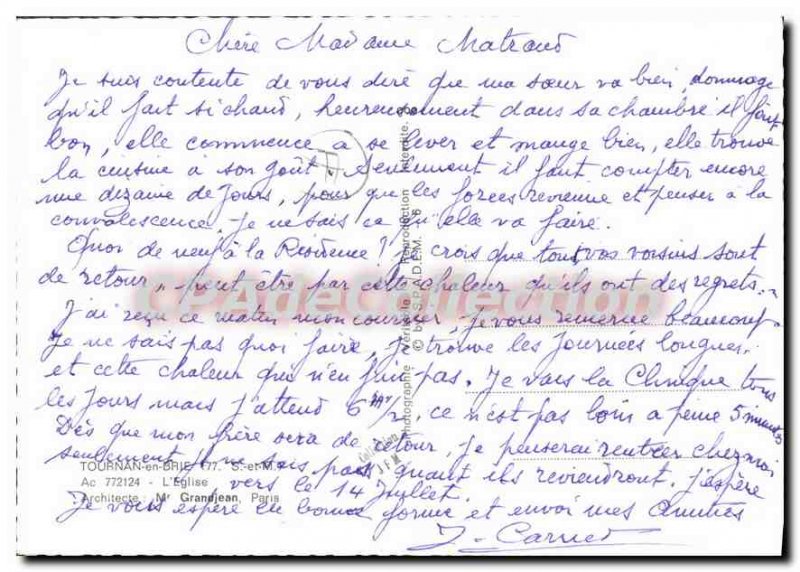 Chère Madame Matraud
Je suis contente de vous dire que ma sœur va bien, dommage
qu'il fait si chaud, heureusement dans sa chambre il fait
bon, elle commence a se lever et mange bien, elle trouve
la cuisine à son goût. Seulement il faut compter encore
une dizaine de Jours, pour que les forces revienne et penser à la
convalescence. Je ne sais ce qu'elle va faire.
Quoi de neuf à la Résidence? Je crois que tous vos voisins sont
de retour, peut être par cette chaleur qu'ils ont des regrets.
J'ai reçu ce matin mon courrier, Je vous remercie beaucoup.
Je ne sais pas quoi faire, je trouve les Journées longues,
et cette chaleur qui n'en finit pas. Je vais la Clinique tous
les Jours mais j'attend 6 1/2, ce n'est pas loin a peine 5 minutes
Dès que mon frère sera de retour, Je penserai rentrer chez moi
seulement Je ne sais pas quant ils reviendront. J'espère
vers le 14 Juillet.
Je vous espère en bonne forme et envoi mes Amitiés
J. Carnet
TOURNAN-en-BRIE (77. S.-et-M.)
Ac 772124 - L'Eglise
Architecte : Mr Grandjean, Paris
Photographie véritable - Reproduction interdite
© by S.P.A.D.E.M.
CPAdeCollection